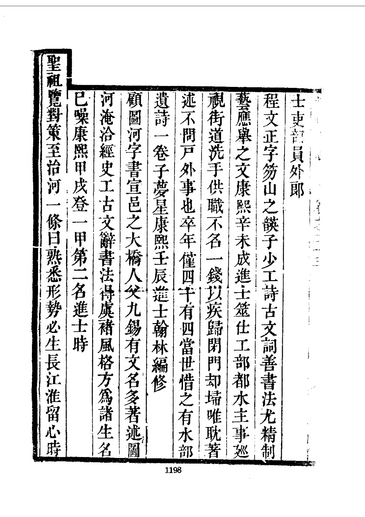 士吏部員外郎
程文正字笏山之韺子少工詩古文詞善書法尤精制
藝應舉之文康熙辛未成進士筮仕工部都水主事廵
視街道洗手供職不名一錢以疾歸閉門却埽唯耽著
述不問戶外事也卒年僅四十有四當世惜之有水部
遺詩一卷子夢星康熙壬辰進士翰林編修
顧圖河字書宣邑之大橋人父九錫有文名多著述圖
河淹洽經史工古文辭書法得虞褚風格方為諸生名
已噪康熙甲戌登一甲第二名進士時
聖祖覽對策至治河一條曰熟悉形勢必生長江淮留心時
1198